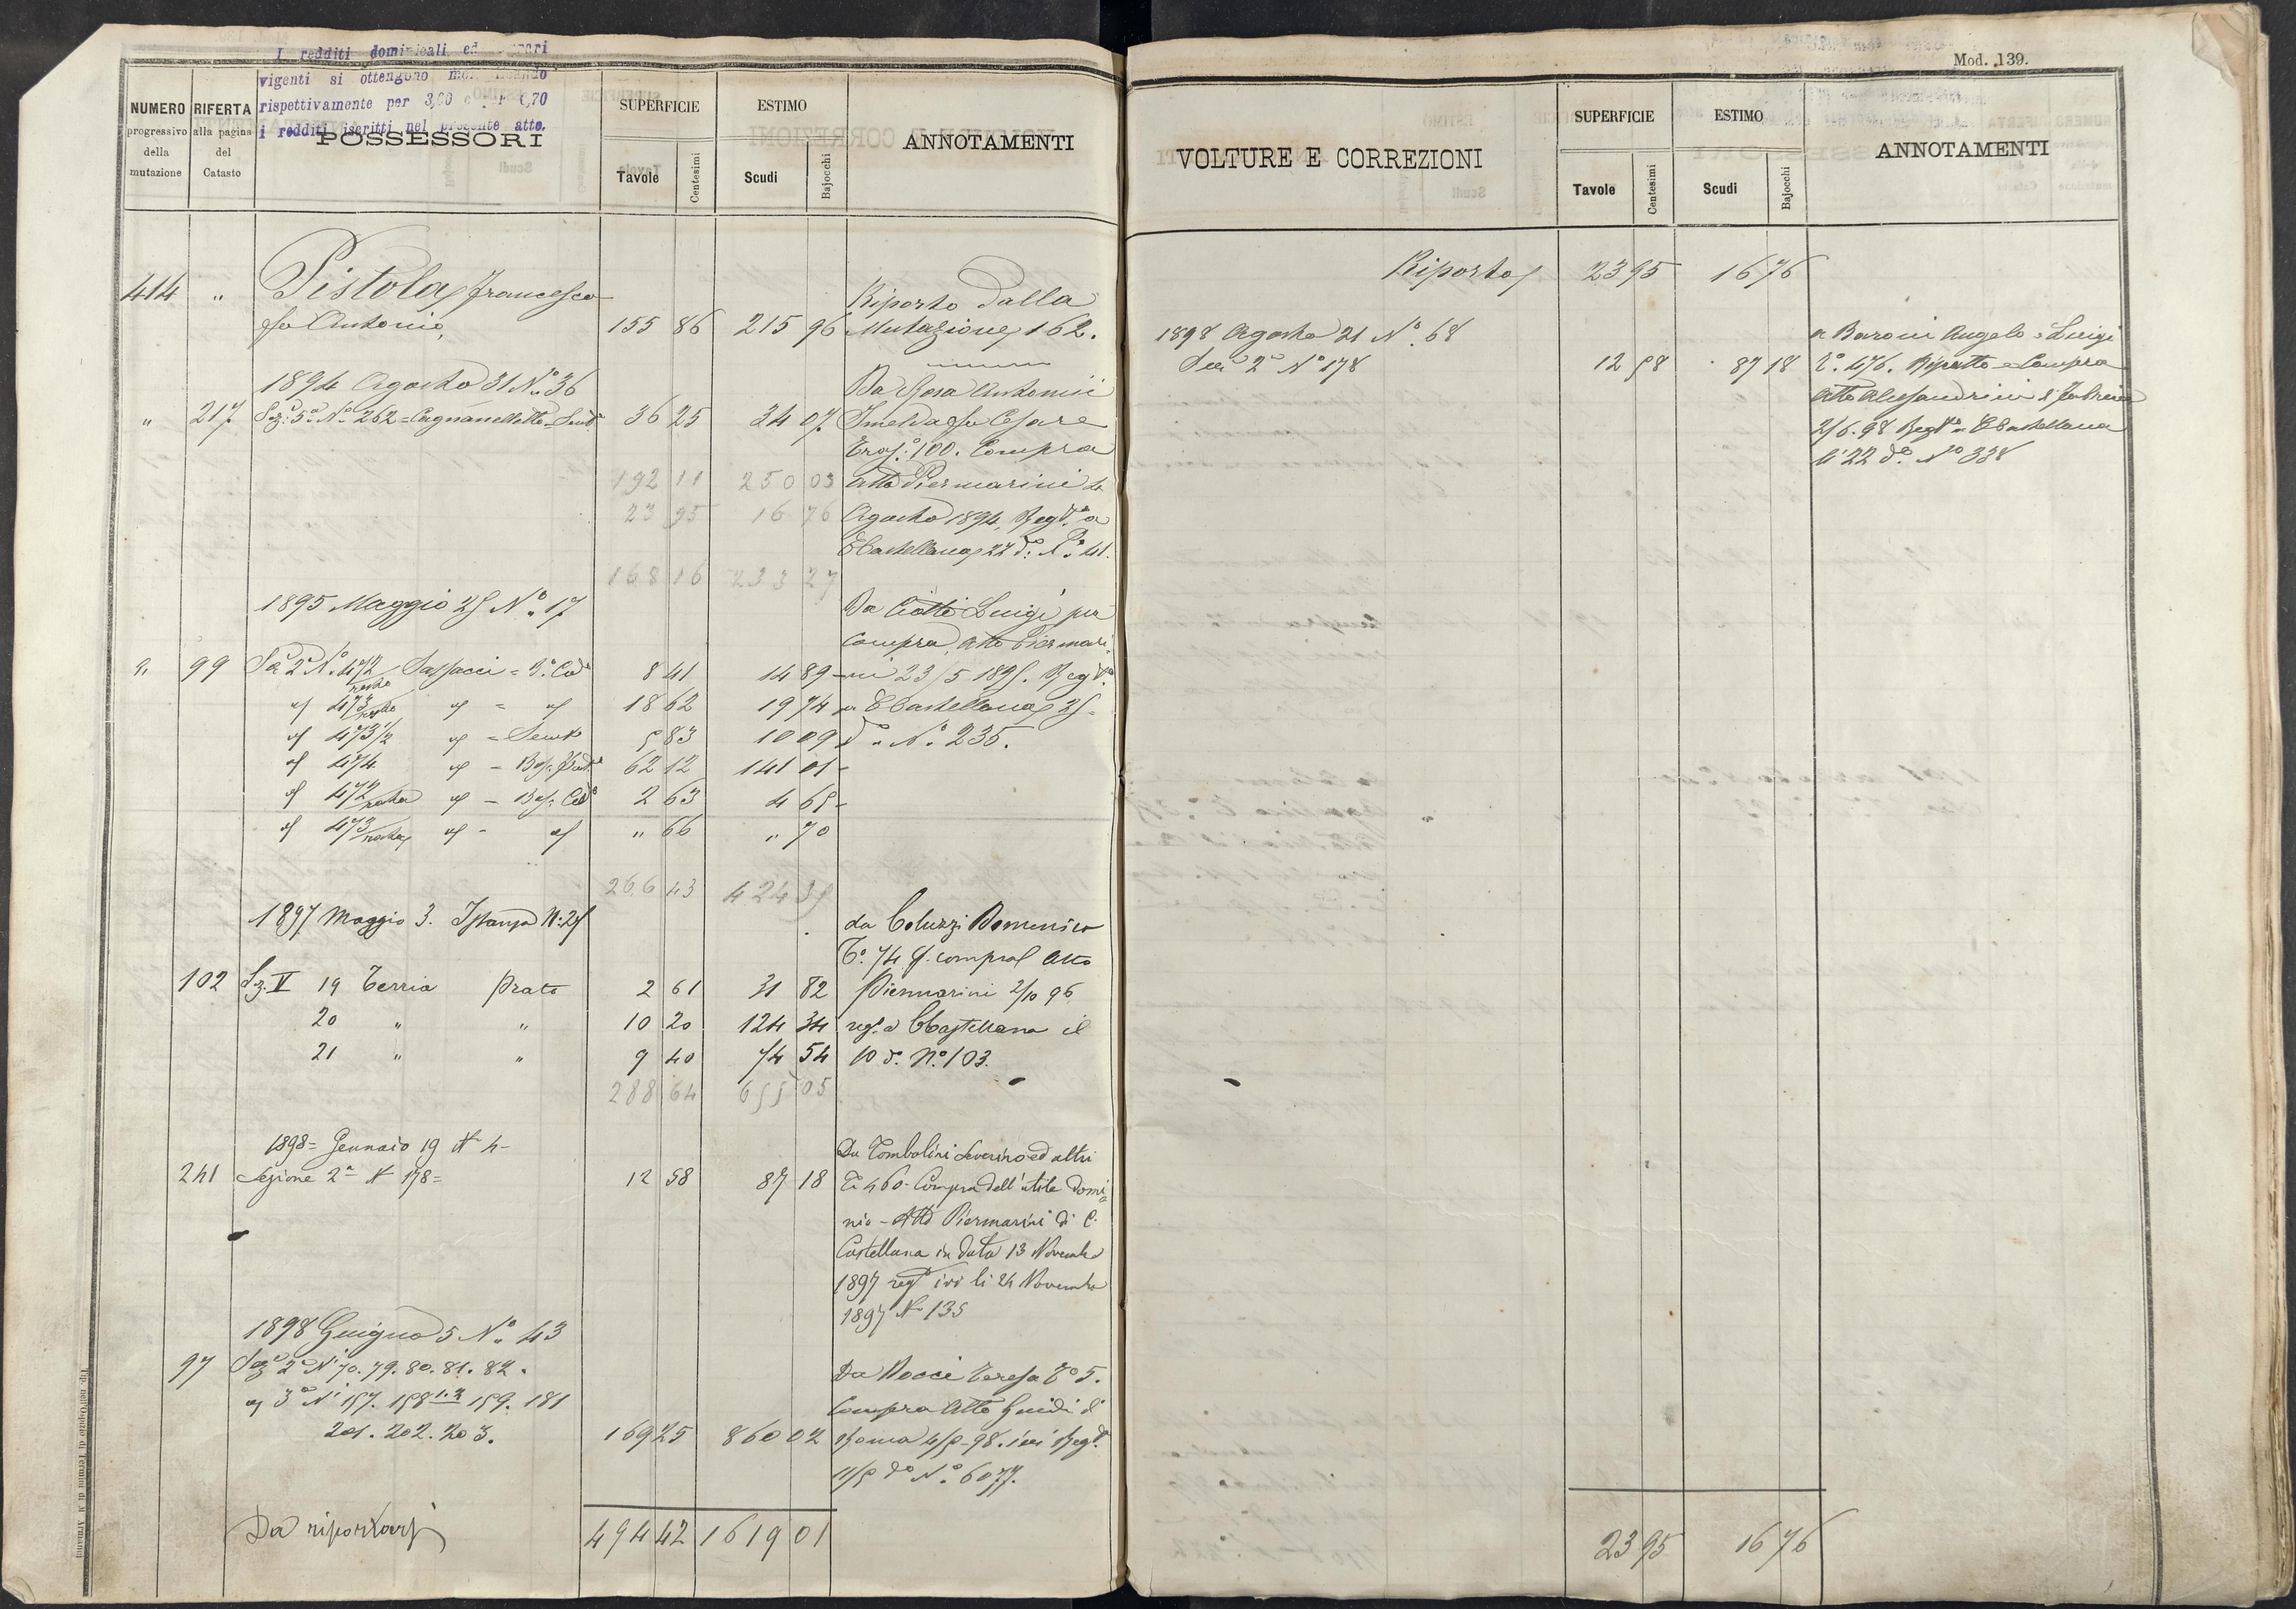 I redditi dominicali ed
vigenti si ottengono
rispettivamente per 3,60 e per 4,70
i redditi iscritti nel presente atto.
NUMERO progressivo della mutazione
RIFERTA alla pagina del Catasto
POSSESSORI
SUPERFICIE
Tavole Centesimi
ESTIMO
Scudi Bajocchi
ANNOTAMENTI
414 " Pistola Francesco Riporto dalla
fu Antonio, 155 86 215 96 Mutazione 162.
1894 Agosto 31 N.° 36 Da Rosa Antonini
" 217 Sez.e 5a N.° 262 = Cagnanelletto = Sem.° 36 25 34 07 Imelda fu Cesare
Tras.: 100. Compra
192 11 250 03 atto Piermarini
23 95 16 76 Agosto 1894, Reg.to a
CCastellana 22 d.° N.° 41.
168 16 233 27
1895 Maggio 25 N.° 17 Da Ciotti Luigi per
Compra, atto Piermari
" 99 Sez. 2a N.° 472 resto Sassacci = 8 41 14 89 ni 23/5 1895. Reg.to
" 473 resto " = " 18 62 19 74 a CCastellana 25
" 473 1/2 " = Sem.° 5 83 10 09 d.° N.° 235.
" 474 " = 62 12 141 01
" 472 resto " = 2 63 4 65
" 473 resto " = " " 66 " 70
266 43 424 35
1897 Maggio 3. Istanza N: 25 da Coluzzi Domenico
T.° 74 p. compra Atto
102 Sez. V 19 Terria Prato 2 61 31 82 Piermarini 2/10 96
20 " " 10 20 124 34 reg.° a CCastellana il
21 " " 9 40 74 54 10 d.° N.° 103.
288 64 655 05
1898 = Gennaio 19 N 4 - Da Tombolini Severino ed altri
241 Sezione 2a N 178 = 12 58 87 18 T. 460 - Compra dell'utile domi
nio - Atto Piermarini di C.
Castellana in data 13 Novembre
1897 reg.to ivi li 24 Novembre
1897 N. 135
1898 Giugno 5 N.° 43
97 Sez.e 2a N.i 70. 79. 80. 81. 82. Da Nocci Teresa T.° 5.
" 3a N.i 157. 158 1.2 159. 181 Compra Atto Guidi di
201. 202. 203. 169 25 860 02 Roma 4/5-98. ivi Reg.to
11/5 d.° N.° 6077.
Da riportarsi 494 42 1619 01
Mod. 139.
VOLTURE E CORREZIONI
SUPERFICIE
Tavole Centesimi
ESTIMO
Scudi Bajocchi
ANNOTAMENTI
Riporto 23 95 16 76
1898 Agosto 21 N.° 68 a Baroni Angelo e Luigi
Sez. 2a N.° 178 12 58 87 18 T.° 476. Rispetto a Compra
Atto Alessandrini di Fabrica
2/6. 98 Reg.to a CCastellana
li 22 d.° N.° 338
23 95 16 76